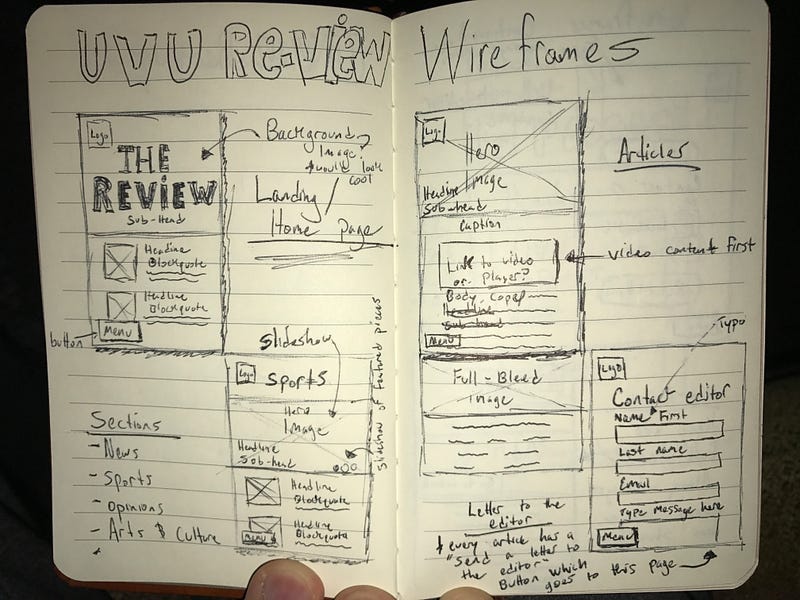 UVU Review
Wireframes
Logo
THE
REVIEW
Sub-Head
Headline
Blockquote
Headline
Blockquote
Menu
button
Background
Image?
would look
cool
Landing/
Home page
Slideshow
Slideshow of featured pieces
Logo
Sports
Hero
Image
Headline
Sub-head
Headline
Blockquote
Headline
Blockquote
Menu
Sections
- News
- Sports
- Opinions
- Arts & Culture
Logo
Hero
Image
Headline
Sub-head
Caption
Link to video
or player?
Body Copy
Headline
Sub-head
Menu
Full-Bleed
Image
Articles
video content first
Typo
Logo
Contact editor
Name First
Last name
Email
Type message here
Menu
Letter to the
editor
every article has a
"send a letter to
the editor"
Button which
goes to this page